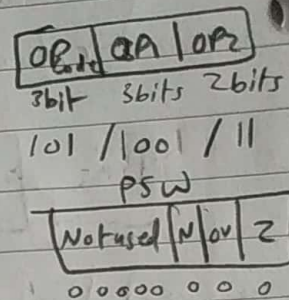 OPcode | OA | OP2
3bit 3bits 2bits
101 / 1001 / 11
PSW
Not used | N | OV | Z
0 0 0 0 0 0 0 0